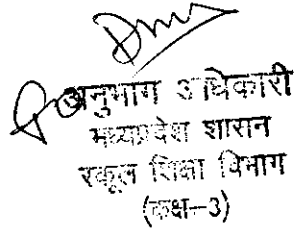 अनुभाग अधिकारी
मध्यप्रदेश शासन
स्कूल शिक्षा विभाग
(कक्ष–3)